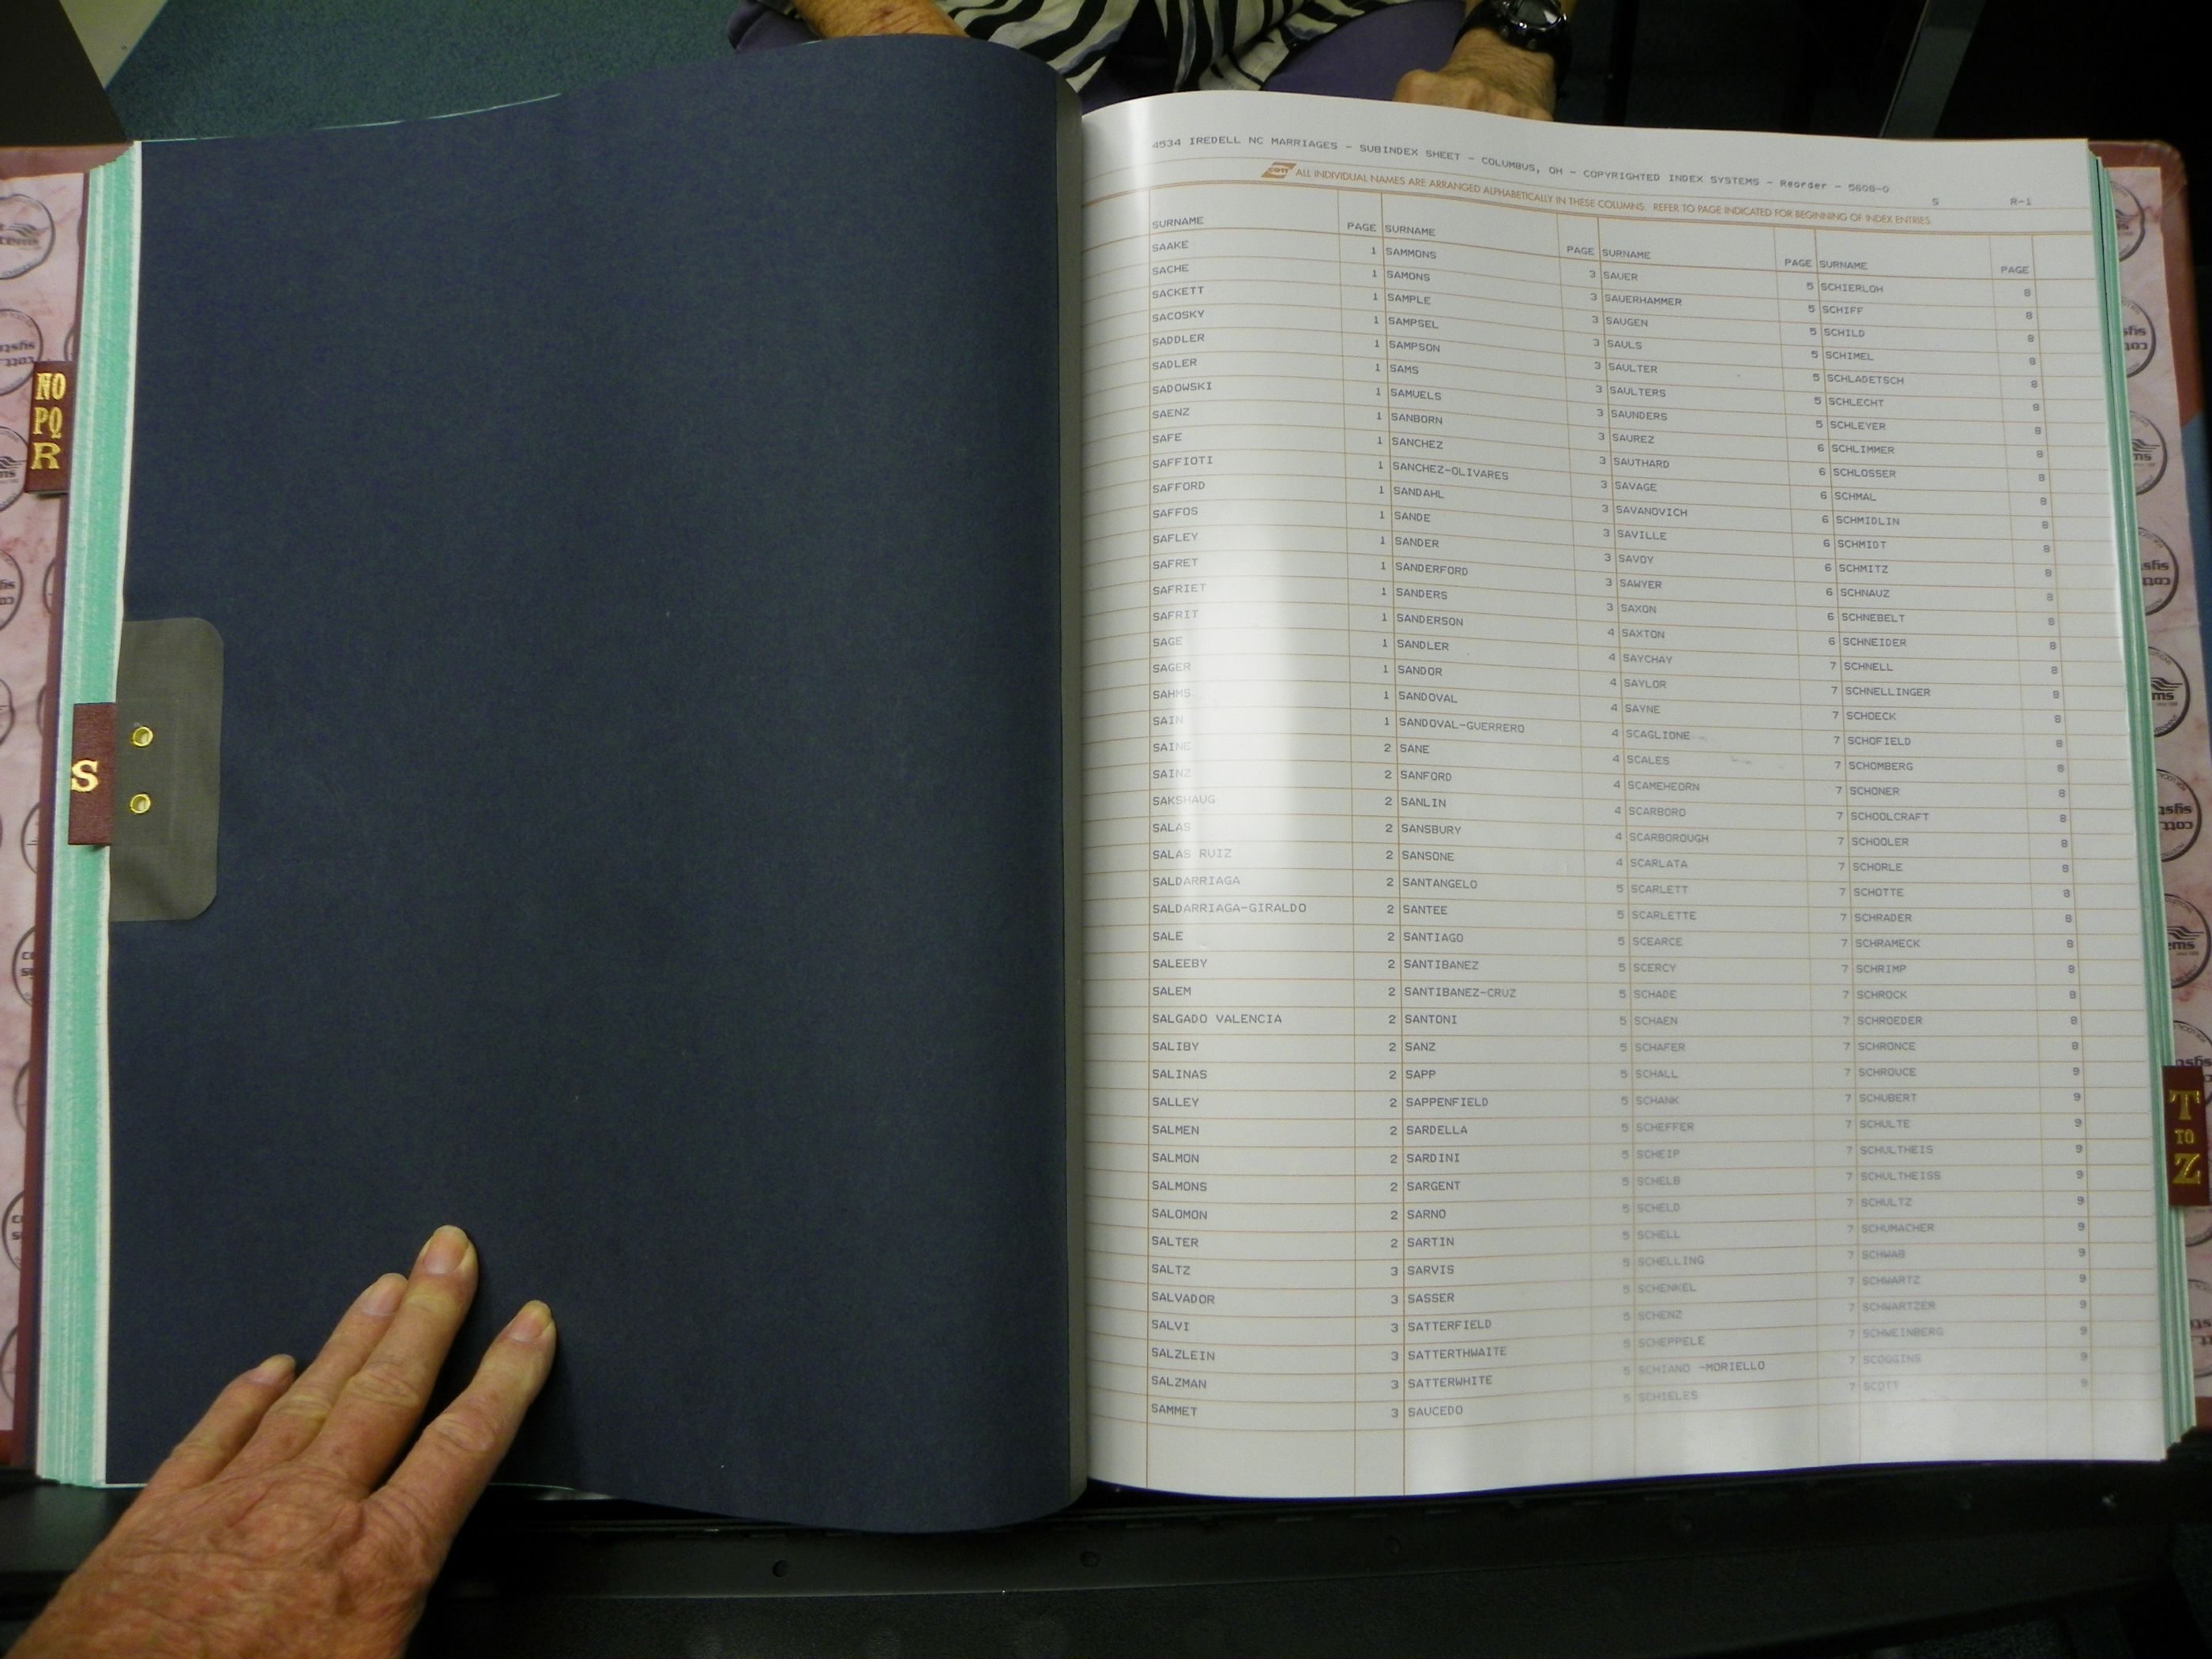 4534 IREDELL NC MARRIAGES - SUBINDEX SHEET - COLUMBUS, OH - COPYRIGHTED INDEX SYSTEMS - Reorder - 5608-0
S R-1
COTT ALL INDIVIDUAL NAMES ARE ARRANGED ALPHABETICALLY IN THESE COLUMNS. REFER TO PAGE INDICATED FOR BEGINNING OF INDEX ENTRIES.
SURNAME PAGE
SAAKE 1
SACHE 1
SACKETT 1
SACOSKY 1
SADDLER 1
SADLER 1
SADOWSKI 1
SAENZ 1
SAFE 1
SAFFIOTI 1
SAFFORD 1
SAFFOS 1
SAFLEY 1
SAFRET 1
SAFRIET 1
SAFRIT 1
SAGE 1
SAGER 1
SAHMS 1
SAIN 1
SAINE 2
SAINZ 2
SAKSHAUG 2
SALAS 2
SALAS RUIZ 2
SALDARRIAGA 2
SALDARRIAGA-GIRALDO 2
SALE 2
SALEEBY 2
SALEM 2
SALGADO VALENCIA 2
SALIBY 2
SALINAS 2
SALLEY 2
SALMEN 2
SALMON 2
SALMONS 2
SALOMON 2
SALTER 2
SALTZ 3
SALVADOR 3
SALVI 3
SALZLEIN 3
SALZMAN 3
SAMMET 3
SURNAME PAGE
SAMMONS 3
SAMONS 3
SAMPLE 3
SAMPSEL 3
SAMPSON 3
SAMS 3
SAMUELS 3
SANBORN 3
SANCHEZ 3
SANCHEZ-OLIVARES 3
SANDAHL 3
SANDE 3
SANDER 3
SANDERFORD 3
SANDERS 3
SANDERSON 4
SANDLER 4
SANDOR 4
SANDOVAL 4
SANDOVAL-GUERRERO 4
SANE 4
SANFORD 4
SANLIN 4
SANSBURY 4
SANSONE 4
SANTANGELO 5
SANTEE 5
SANTIAGO 5
SANTIBANEZ 5
SANTIBANEZ-CRUZ 5
SANTONI 5
SANZ 5
SAPP 5
SAPPENFIELD 5
SARDELLA 5
SARDINI 5
SARGENT 5
SARNO 5
SARTIN 5
SARVIS 5
SASSER 5
SATTERFIELD 5
SATTERTHWAITE 5
SATTERWHITE 5
SAUCEDO 5
SURNAME PAGE
SAUER 5
SAUERHAMMER 5
SAUGEN 5
SAULS 5
SAULTER 5
SAULTERS 5
SAUNDERS 5
SAUREZ 6
SAUTHARD 6
SAVAGE 6
SAVANOVICH 6
SAVILLE 6
SAVOY 6
SAWYER 6
SAXON 6
SAXTON 6
SAYCHAY 7
SAYLOR 7
SAYNE 7
SCAGLIONE 7
SCALES 7
SCAMEHEORN 7
SCARBORO 7
SCARBOROUGH 7
SCARLATA 7
SCARLETT 7
SCARLETTE 7
SCEARCE 7
SCERCY 7
SCHADE 7
SCHAEN 7
SCHAFER 7
SCHALL 7
SCHANK 7
SCHEFFER 7
SCHEIP 7
SCHELB 7
SCHELD 7
SCHELL 7
SCHELLING 7
SCHENKEL 7
SCHENZ 7
SCHEPPELE 7
SCHIANO -MORIELLO 7
SCHIELES 7
SURNAME PAGE
SCHIERLOH 8
SCHIFF 8
SCHILD 8
SCHIMEL 8
SCHLADETSCH 8
SCHLECHT 8
SCHLEYER 8
SCHLIMMER 8
SCHLOSSER 8
SCHMAL 8
SCHMIDLIN 8
SCHMIDT 8
SCHMITZ 8
SCHNAUZ 8
SCHNEBELT 8
SCHNEIDER 8
SCHNELL 8
SCHNELLINGER 8
SCHOECK 8
SCHOFIELD 8
SCHOMBERG 8
SCHONER 8
SCHOOLCRAFT 8
SCHOOLER 8
SCHORLE 8
SCHOTTE 8
SCHRADER 8
SCHRAMECK 8
SCHRIMP 8
SCHROCK 8
SCHROEDER 8
SCHRONCE 8
SCHROUCE 9
SCHUBERT 9
SCHULTE 9
SCHULTHEIS 9
SCHULTHEISS 9
SCHULTZ 9
SCHUMACHER 9
SCHWAB 9
SCHWARTZ 9
SCHWARTZER 9
SCHWEINBERG 9
SCOGGINS 9
SCOTT 9
NO
PQ
R
S
T
TO
Z